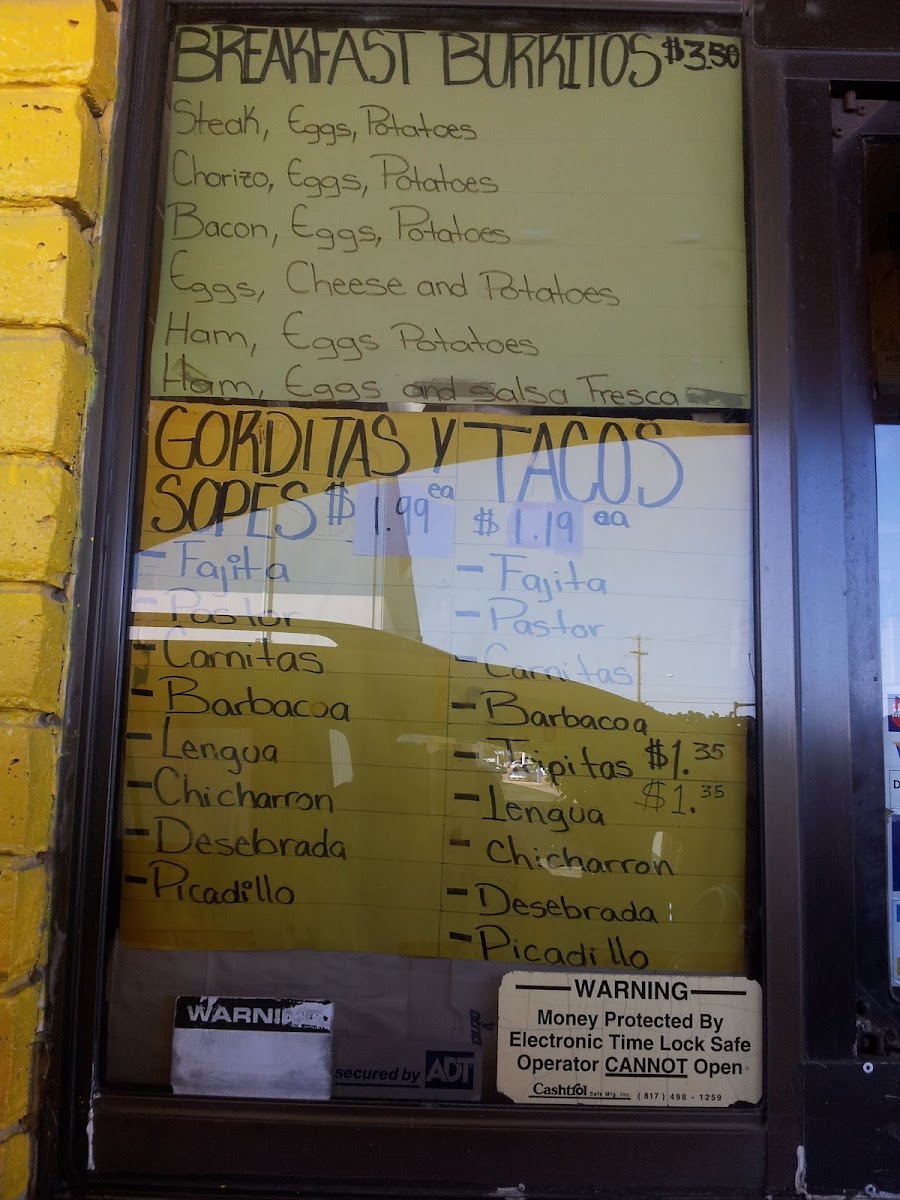 BREAKFAST BURRITOS $3.50
Steak, Eggs, Potatoes
Chorizo, Eggs, Potatoes
Bacon, Eggs, Potatoes
Eggs, Cheese and Potatoes
Ham, Eggs Potatoes
Ham, Eggs and Salsa Fresca
GORDITAS Y
SOPES $1.99 ea
- Fajita
- Pastor
- Carnitas
- Barbacoa
- Lengua
- Chicharron
- Desebrada
- Picadillo
TACOS
$1.19 ea
- Fajita
- Pastor
- Carnitas
- Barbacoa
- Tripitas $1.35
- Lengua $1.35
- Chicharron
- Desebrada
- Picadillo
WARNING
secured by ADT
WARNING
Money Protected By
Electronic Time Lock Safe
Operator CANNOT Open
Cashtrol Safe Mfg. Inc. (817) 498 - 1259